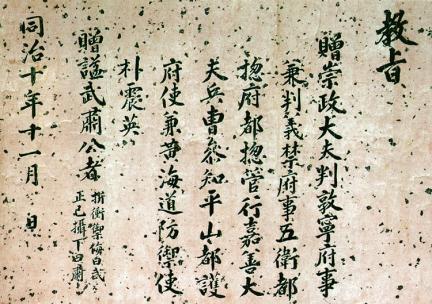 教旨
贈崇政大夫判敦寧府事
兼判義禁府事五衛都
摠府都摠管行嘉善大
夫兵曹叅知平山都護
府使兼黄海道防禦使
朴震英
贈諡武肅公者
折衝禦侮曰武
正己攝下曰肅
同治十年十一月 日